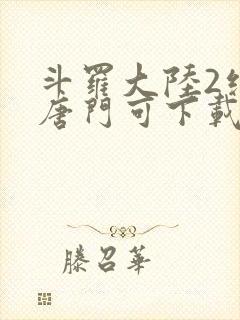 斗羅大陸2
唐門可下載
滕召華